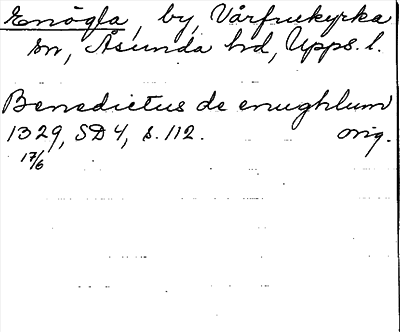 Enögla, by, Vårfrukyrka
sn, Åsunda hd, Upps. l.
Benedictus de enughlum
1329, SD 4, s. 112. orig.
17/6